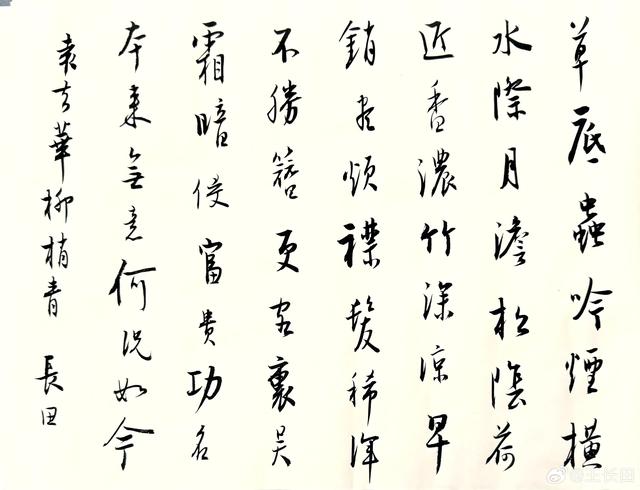 草底蟲吟煙橫
水際月澹松陰荷
近香濃竹深涼早
銷盡煩襟髮稀渾
不勝簪更客裏吳
霜暗侵富貴功名
本來無意何況如今
袁去華柳梢青 長田
@王长田